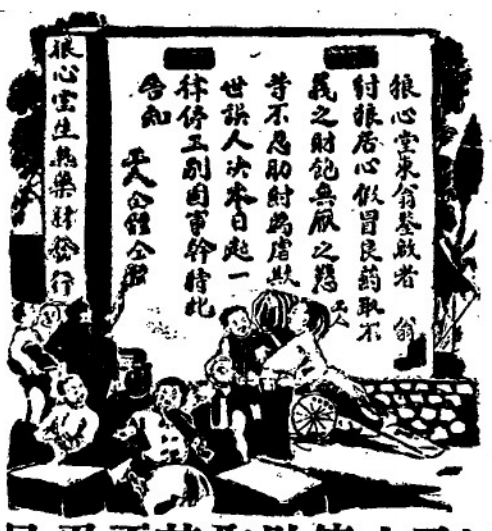 狼心堂東翁鋻啟者　翁
豺狼居心假冒良药取不
義之財飽無厭之慾
等不忍助豺為虐欺
世誤人决本日起一
律停工别圖事幹特此
告知
工人仝體仝啟
狼心堂生熟藥材發行
工人